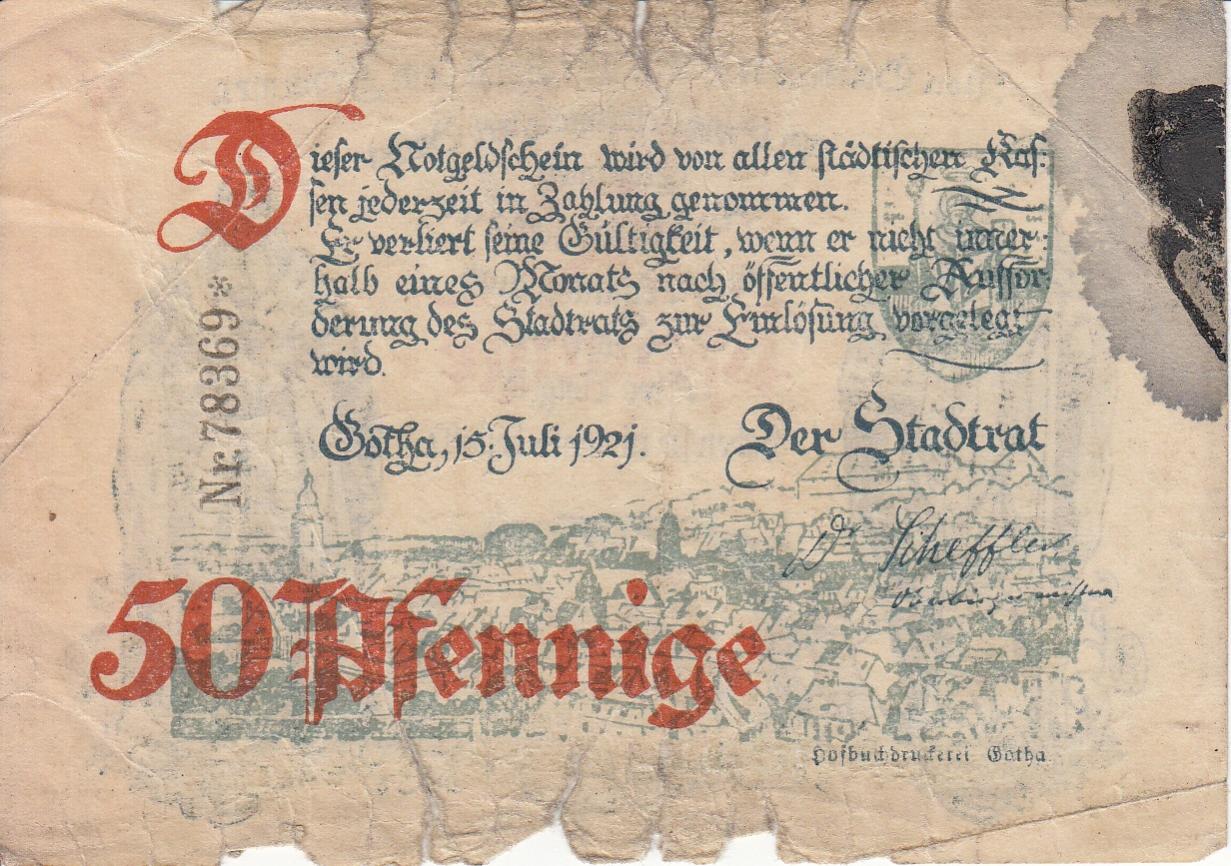 Dieser Notgeldschein wird von allen städtischen Kas-
sen jederzeit in Zahlung genommen.
Er verliert seine Gültigkeit, wenn er nicht inner-
halb eines Monats nach öffentlicher Auffor-
derung des Stadtrats zur Einlösung vorgelegt
wird.
Gotha, 15. Juli 1921.
Der Stadtrat
Nr. 78369*
Dr Scheffler
Oberbürgermeister
50 Pfennige
Hofbuchdruckerei Gotha